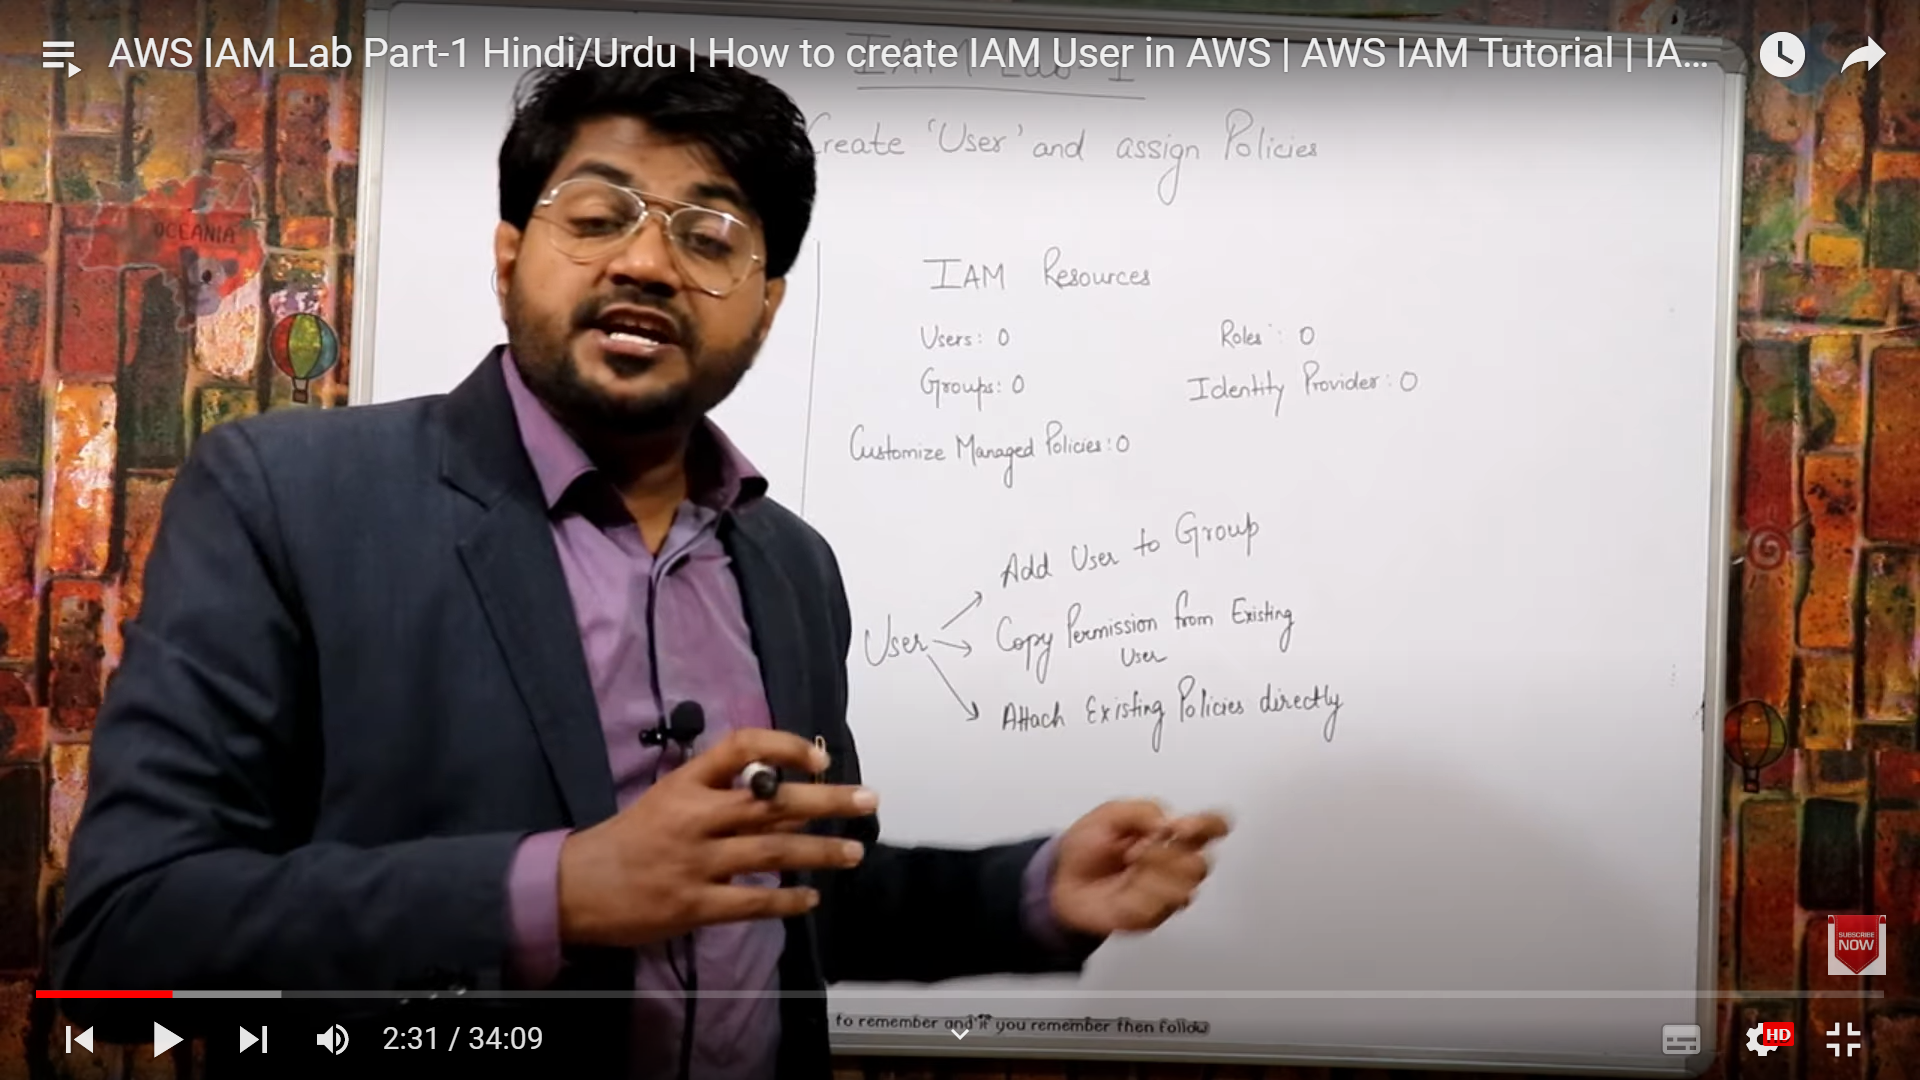 AWS IAM Lab Part-1 Hindi/Urdu | How to create IAM User in AWS | AWS IAM Tutorial | IA...
IAM Lab 1
Create 'User' and assign Policies
OCEANIA
IAM Resources
Users: 0 Roles: 0
Groups: 0 Identity Provider: 0
Customize Managed Policies: 0
Add User to Group
User Copy Permission from Existing
User
Attach Existing Policies directly
SUBSCRIBE
NOW
to remember and if you remember then follow
2:31 / 34:09
HD